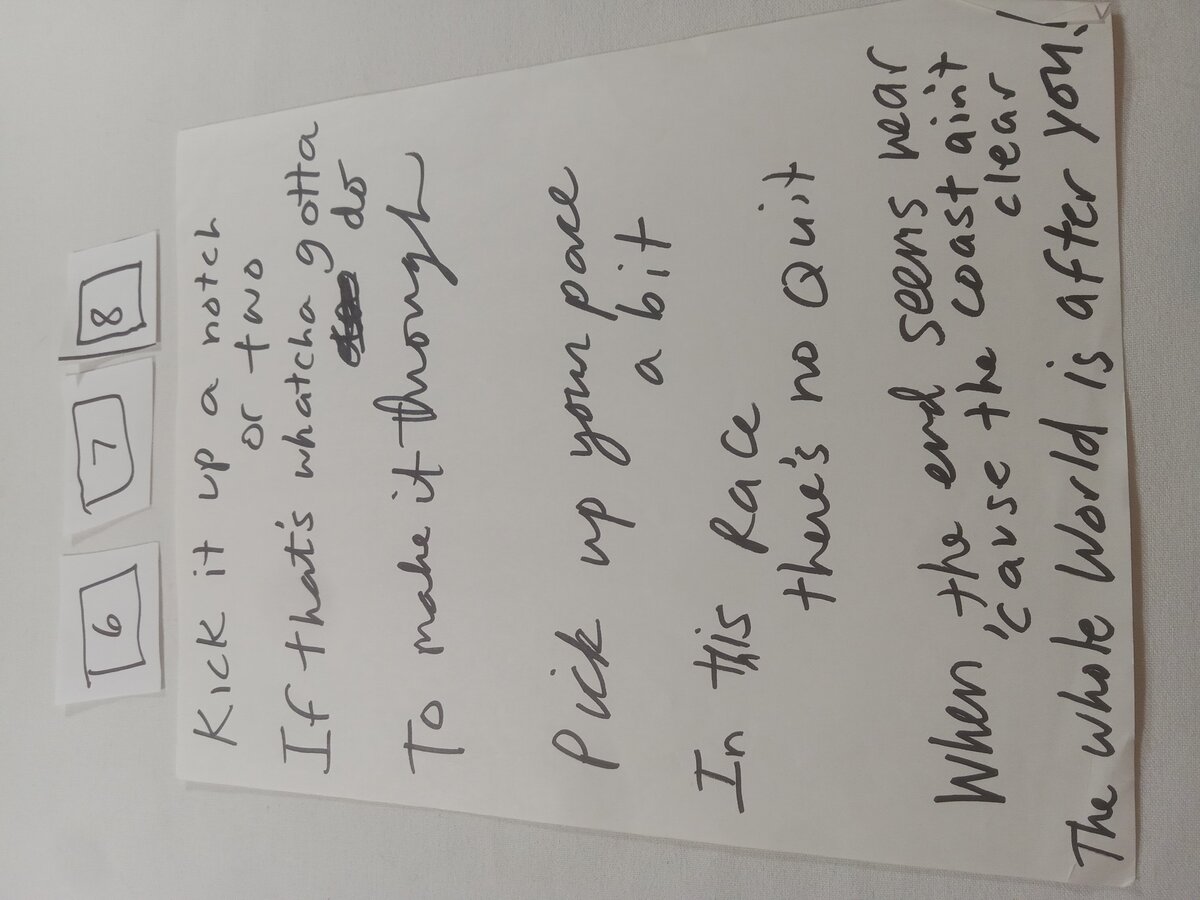 6 7 8
Kick it up a notch
or two
If that's whatcha gotta
do
To make it through
Pick up your pace
a bit
In this Race
there's no Quit
When the end seems near
'cause the coast ain't
clear
The whole World is after you!